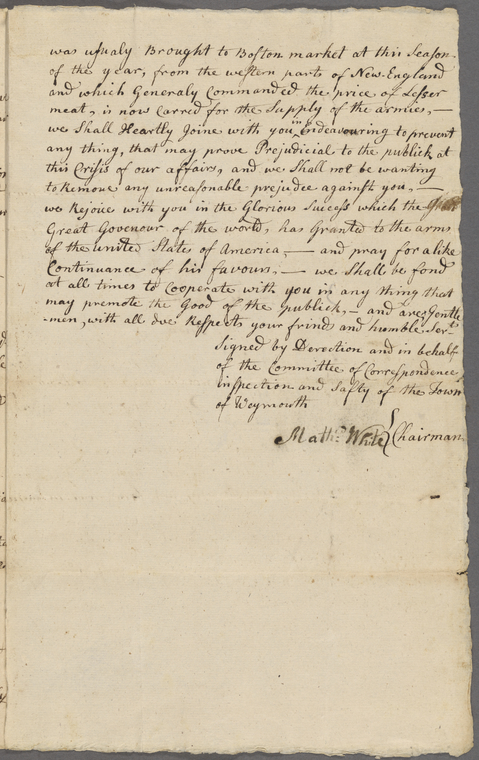 was usualy Brought to Boston market at this Season
of the year, from the western parts of New-England
and which Generaly Commanded the price of Lesser
meat, is now Carred for the Supply of the armies, —
we Shall Heartly Joine with you in Endeavouring to prevent
any thing, that may prove Prejudicial to the publick at
this Crisis of our affairs, and we Shall not be wanting
to Remove any unreasonable prejudice against you, —
we Rejoice with you in the Glorious Sucess which the
Great Govenour of the world, has Granted to the arms
of the united States of America, — and pray for a like
Continuance of his favours, — we Shall be fond
at all times to Cooperate with you in any thing that
may premote the Good of the publick, — and are Gentle
-men, with all due Respects your frinds and humble Serts
Signed by Derection and in behalf
of the Committee of Correspondence
inspection and Safty of the Town
of Weymouth
Mathw White } Chairman